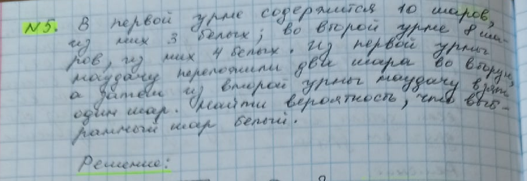 N5. В первой урне содержится 10 шаров,
из них 3 белых; во второй урне 8 ша-
ров, из них 4 белых. Из первой урны
наудачу переложили два шара во вторую,
а затем из второй урны наудачу взяли
один шар. Найти вероятность, что выб
ранный шар белый.
Решение: